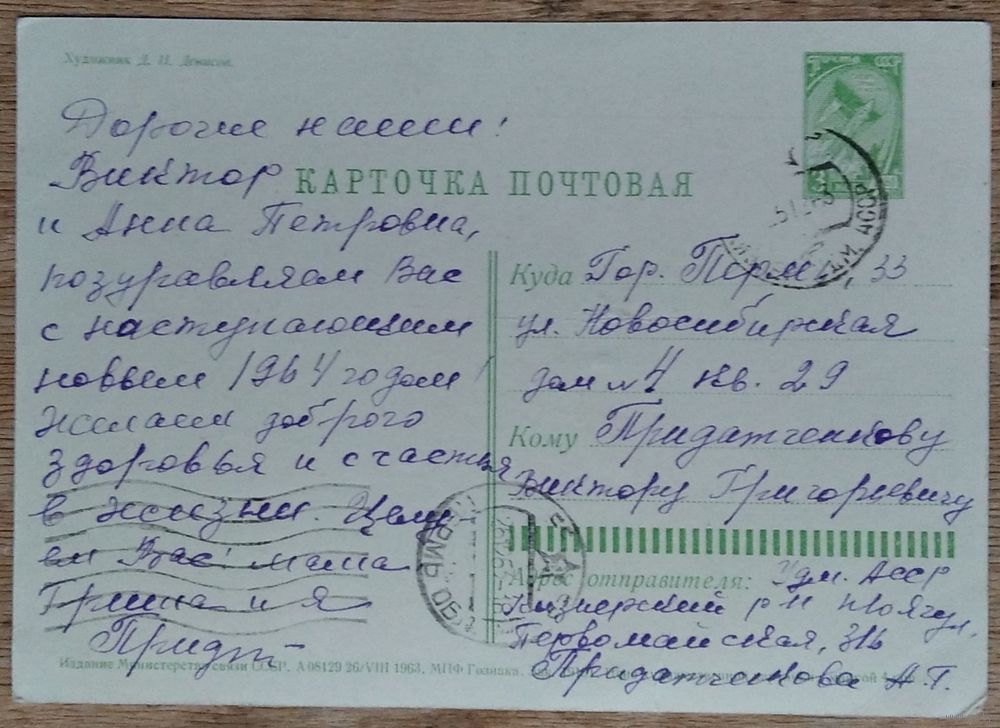 Художник Д. И. Денисов.
Почта СССР
Дорогие наши!
Виктор
КАРТОЧКА ПОЧТОВАЯ
и Анна Петровна,
поздравляем Вас
с наступающим
новым 1964 годом!
Желаем доброго
здоровья и счастья
в жизни. Целу
ем Вас: мама
и я
Куда Гор. Пермь, 33
ул. Новосибирская
дом № 4 кв. 29
Кому Придатченкову
Виктору Григорьевичу
Адрес отправителя: Удм. АССР
Кизнерский р-н
Первомайская, 31б
Придатченкова А. Г.
ПЕРМЬ
Издание Министерства связи СССР. А 08129 26/VIII 1963. МПФ Гознака.